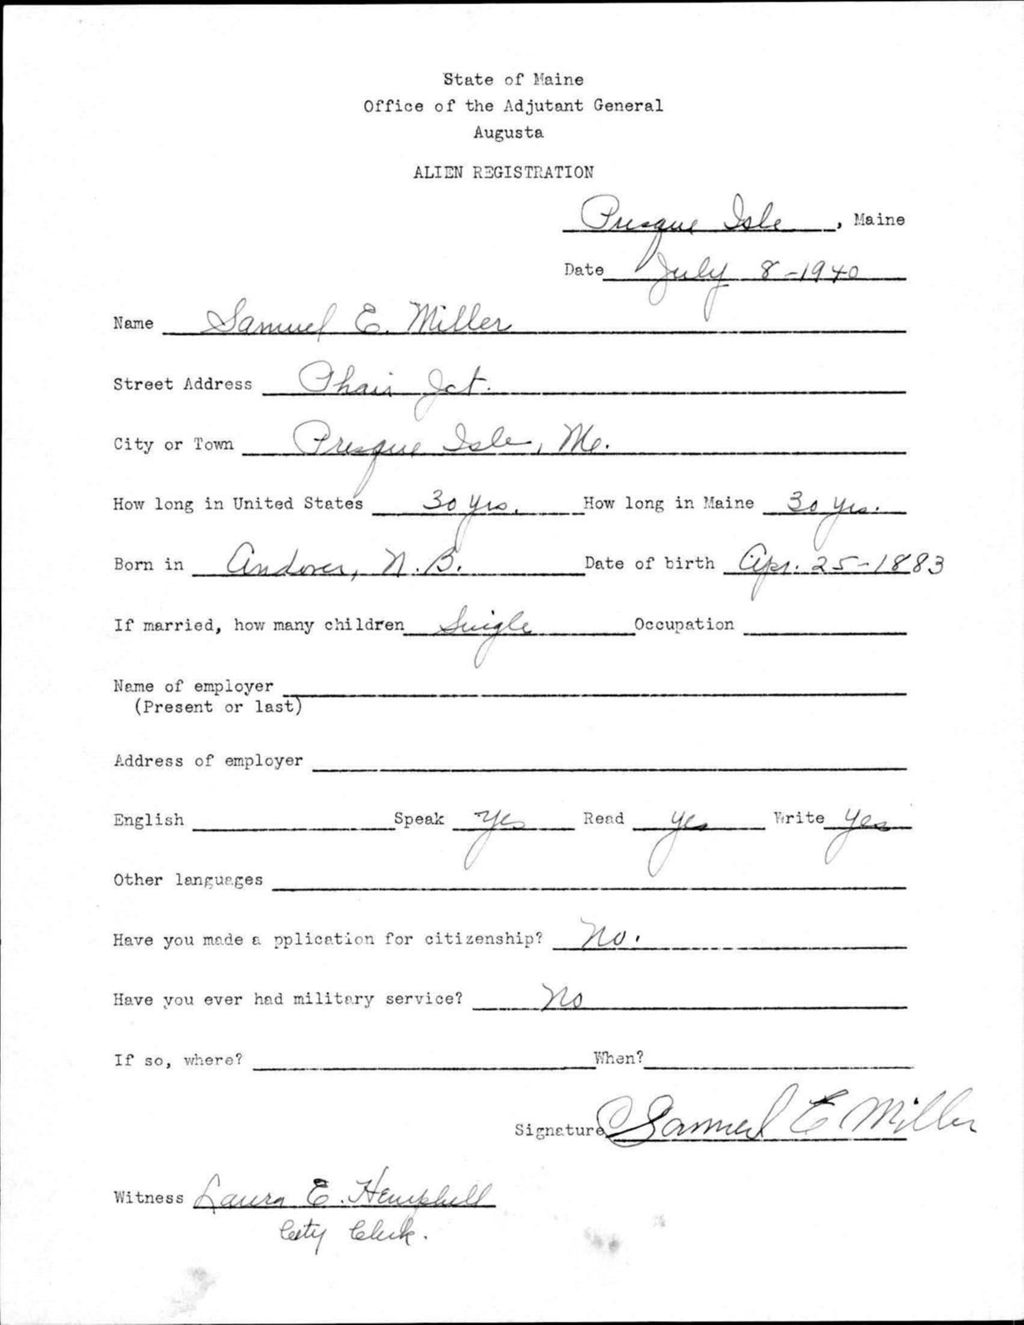 State of Maine
Office of the Adjutant General
Augusta
ALIEN REGISTRATION
Presque Isle, Maine
Date July 8-1940
Name Samuel E. Miller
Street Address Phair Jct.
City or Town Presque Isle, Me.
How long in United States 30 yrs. How long in Maine 30 yrs.
Born in Andover, N.B. Date of birth Apr. 25-1883
If married, how many children Single Occupation
Name of employer
(Present or last)
Address of employer
English Speak Yes Read Yes Write Yes
Other languages
Have you made a pplication for citizenship? No.
Have you ever had military service? No
If so, where? When?
Signature Samuel E Miller
Witness Laura E. Hemphill
City Clerk.